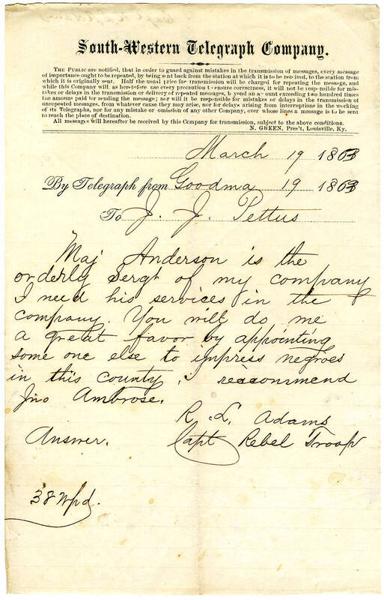 South-Western Telegraph Company.
THE PUBLIC are notified, that in order to guard against mistakes in the transmission of messages, every message
of importance ought to be repeated, by being sent back from the station at which it is to be received, to the station from
which it is originally sent. Half the usual price for transmission will be charged for repeating the message, and
while this Company will as heretofore use every precaution to ensure correctness, it will not be responsible for mis-
takes or delays in the transmission or delivery of repeated messages, beyond an amount exceeding two hundred
times the amount paid for sending the message; nor will it be responsible for mistakes or delays in the transmission of
unrepeated messages, from whatever cause they may arise, nor for delays arising from interruptions in the working
of its Telegraphs, nor for any mistake or omission of any other Company, over whose lines a message is to be sent
to reach the place of destination.
All messages will hereafter be received by this Company for transmission, subject to the above conditions.
N. GREEN, Pres't, Louisville, Ky.
March 19 1863
By Telegraph from Goodma 19 1863
To J. J. Pettus
Maj Anderson is the
orderly Sergt of my company
I need his services in the
company. You will do me
a great favor by appointing
some one else to impress negroes
in this county, I reacommend
Jno Ambrose.
R. L. Adams
Answer. Capt Rebel Troop
38 Wpd.